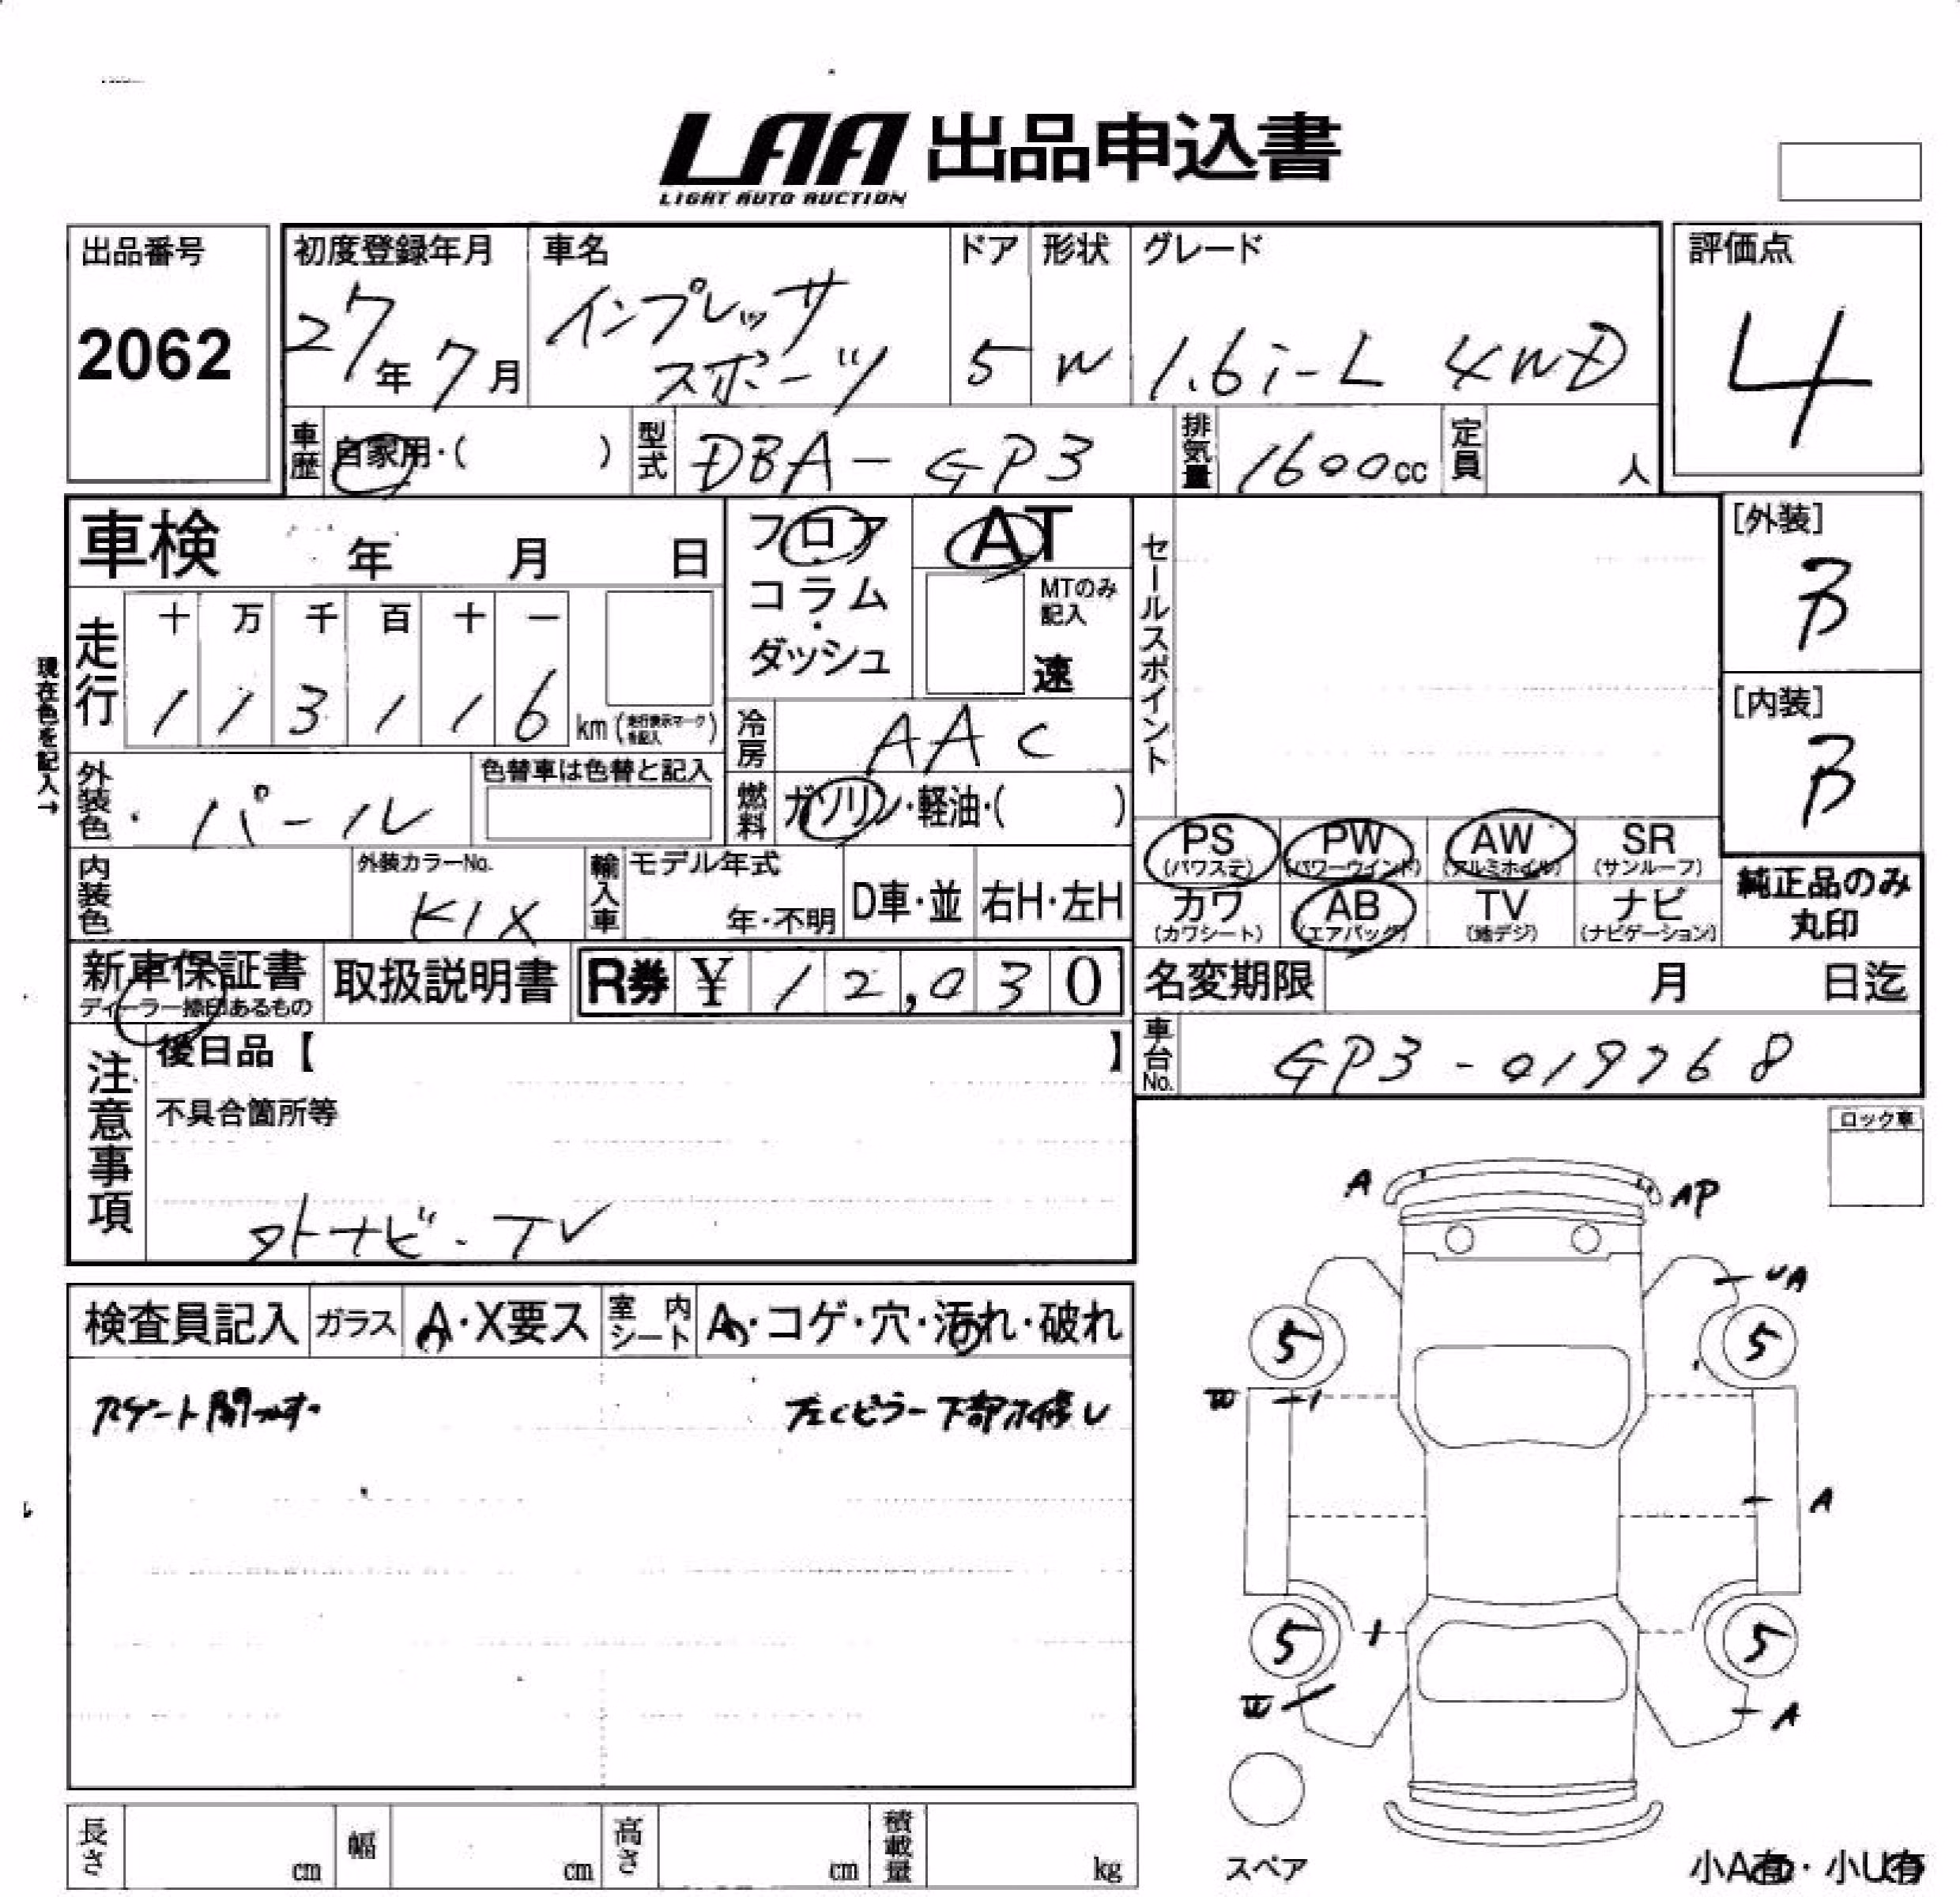 LAA 出品申込書
LIGHT AUTO AUCTION
出品番号
2062
初度登録年月
27年 7月
車名
インプレッサ
スポーツ
ドア
5
形状
W
グレード
1.6i-L 4WD
評価点
4
車歴 自家用・( )
型式 DBA-GP3
排気量 1600cc
定員 人
車検 年 月 日
フロア
・
コラム
・
ダッシュ
AT
MTのみ
記入
速
セールスポイント
[外装]
B
[内装]
B
現在色を記入→
走行
十 万 千 百 十 一
1 1 3 1 1 6 km (走行表示マークを記入)
冷房 AAC
外装色 パール
色替車は色替と記入
燃料 ガソリン・軽油・( )
PS
(パワステ)
PW
(パワーウインド)
AW
(アルミホイル)
SR
(サンルーフ)
カワ
(カワシート)
AB
(エアバック)
TV
(地デジ)
ナビ
(ナビゲーション)
純正品のみ
丸印
内装色
外装カラーNo.
K1X
輸入車
モデル年式
年・不明
D車・並
右H・左H
新車保証書
ディーラー捺印あるもの
取扱説明書
R券 ¥ 12,030
名変期限 月 日迄
車台No. GP3-019768
注意事項
後日品【 】
不具合箇所等
外ナビ・TV
ロック車
検査員記入
ガラス
A・X要ス
室内シート
A・コゲ・穴・汚れ・破れ
左Cピラー下部
A
AP
UA
5
5
W
A
5
5
W
A
スペア
長さ cm
幅 cm
高さ cm
積載量 kg
小A有・小U有